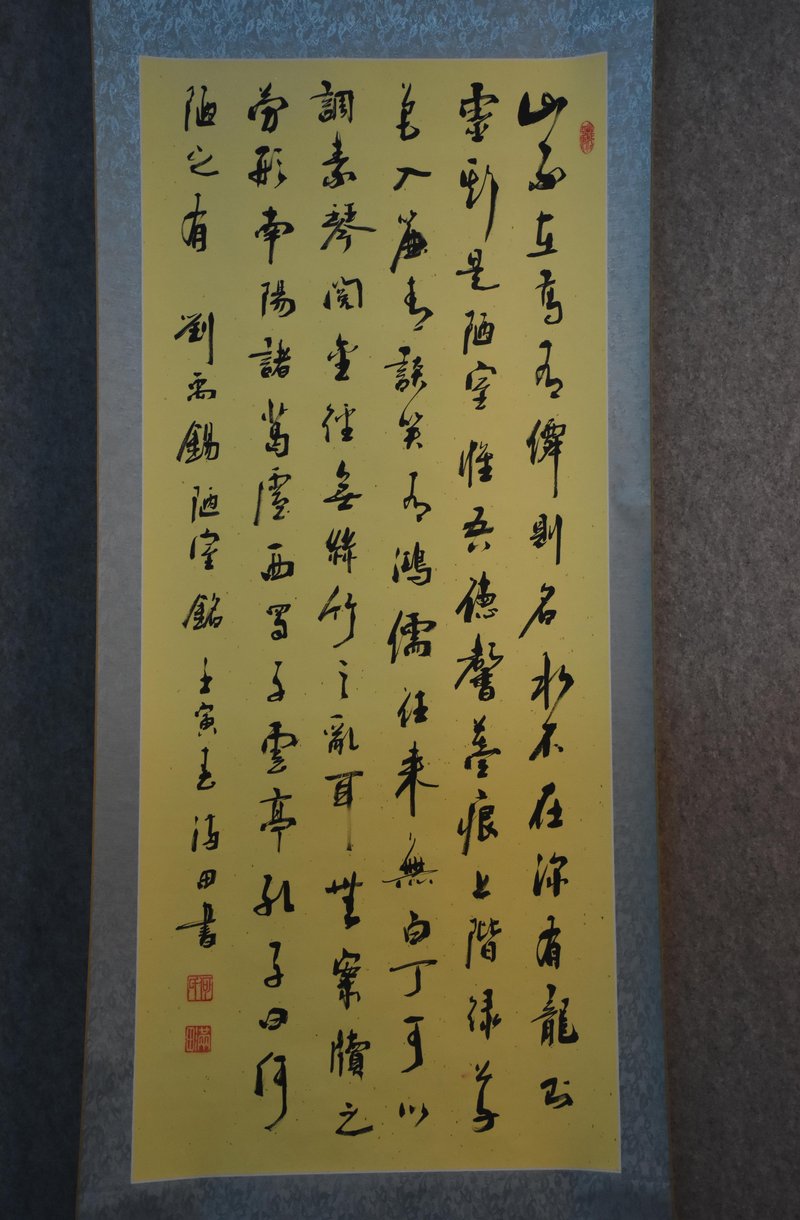 山不在高有僊則名水不在深有龍則
靈斯是陋室惟吾德馨薹痕上階綠草
色入簾青談笑有鴻儒往來無白丁可以
調素琴閱金經無絲竹之亂耳無案牘之
勞形南陽諸葛廬西蜀子雲亭孔子曰何
陋之有 劉禹錫陋室銘 壬寅春海田書